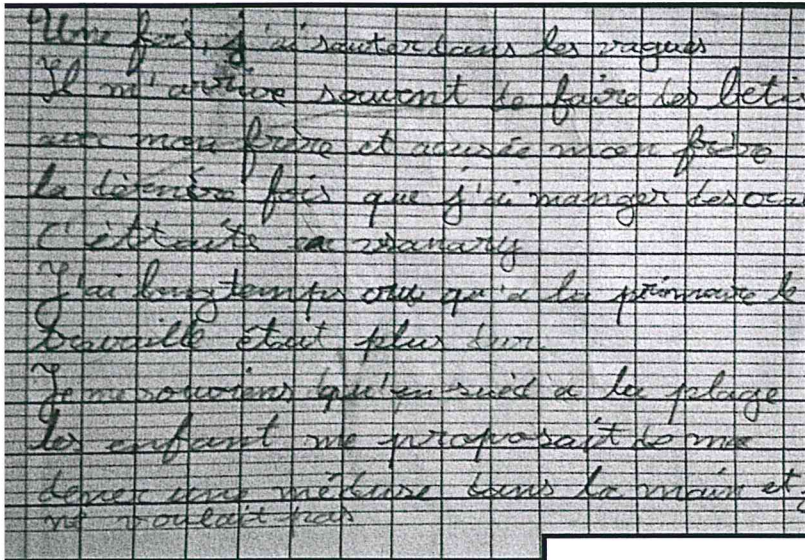 Une fois, j'ai sauter dans les vagues
Il m'arrive souvent de faire des beti
avec mon frère et acusée mon frère
la dernière fois que j'ai manger des
c'éttaite a sanary
J'ai longtemps cru qu'a la primaire le
travaille était plus dur
Je me souviens qu'en suèd a la plage
les enfant me proposait de me
doner une méduse dans la main et
ne voulait pas